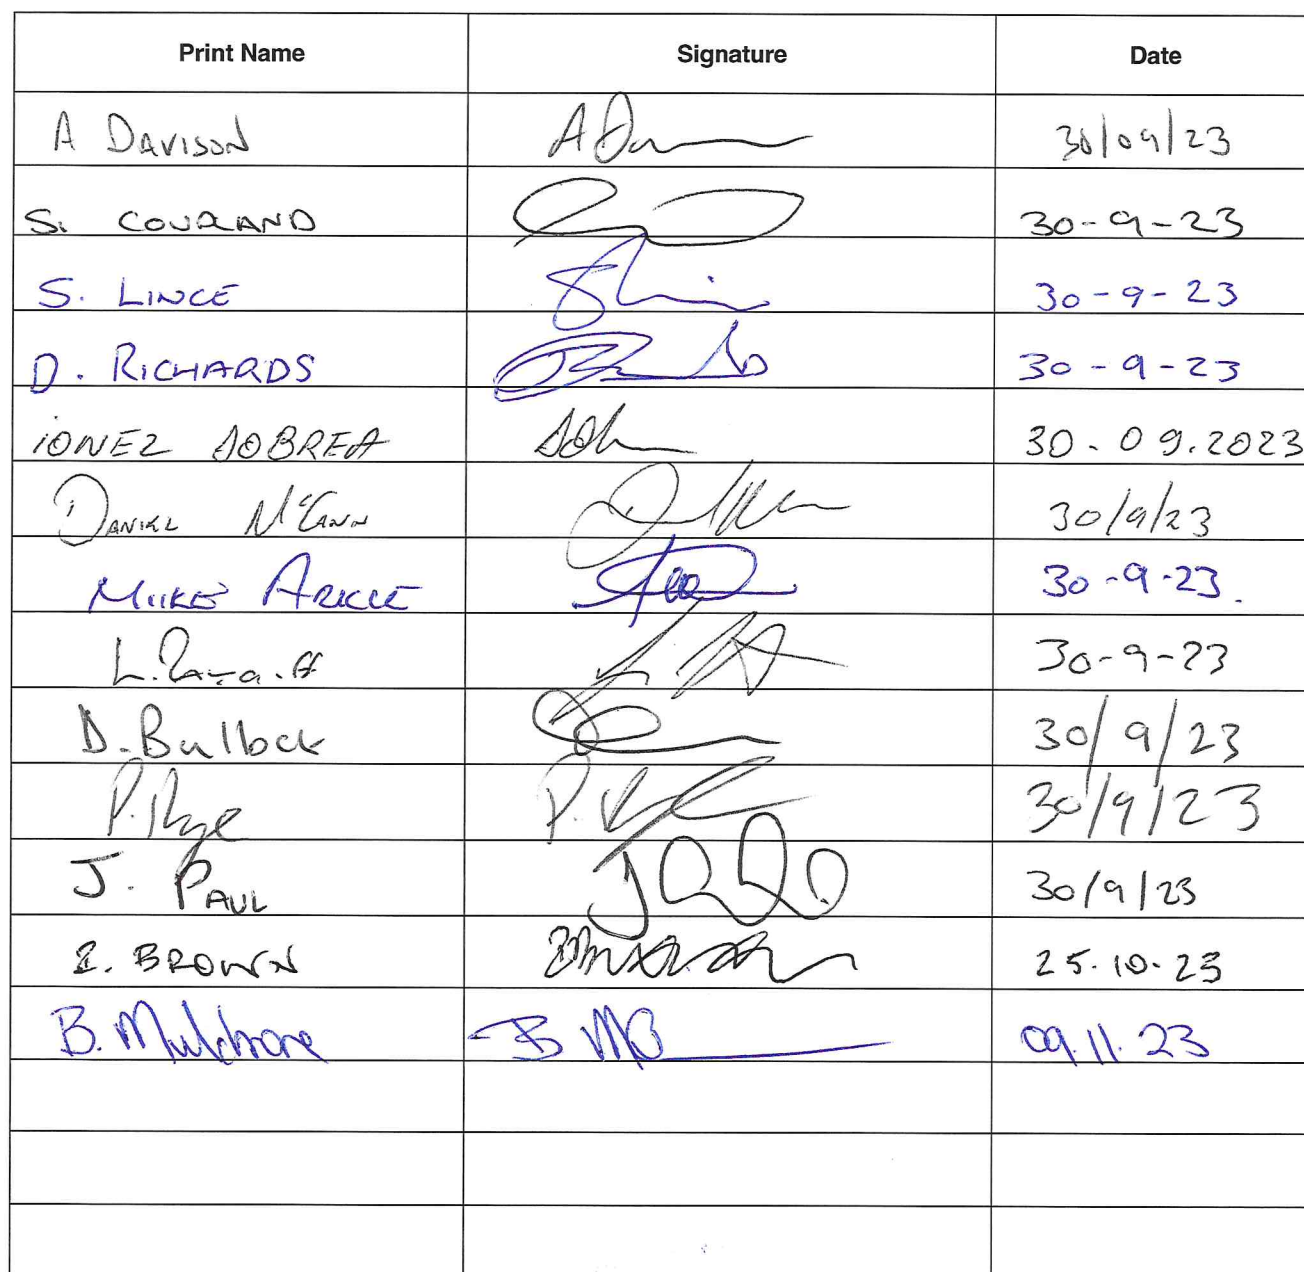 Print Name Signature Date
A DAVISON A Da 30/09/23
S. COUPLAND 30-9-23
S. LINCE 30-9-23
D. RICHARDS 30-9-23
IONEZ DOBREA 30.09.2023
DANIEL McCANN 30/9/23
MIIKE ARKLE 30-9-23.
L. 30-9-23
D. Bullock 30/9/23
P. Rye P. 30/9/23
J. PAUL 30/9/23
Z. BROWN 25.10.23
B. Mulchrone B M 09.11.23